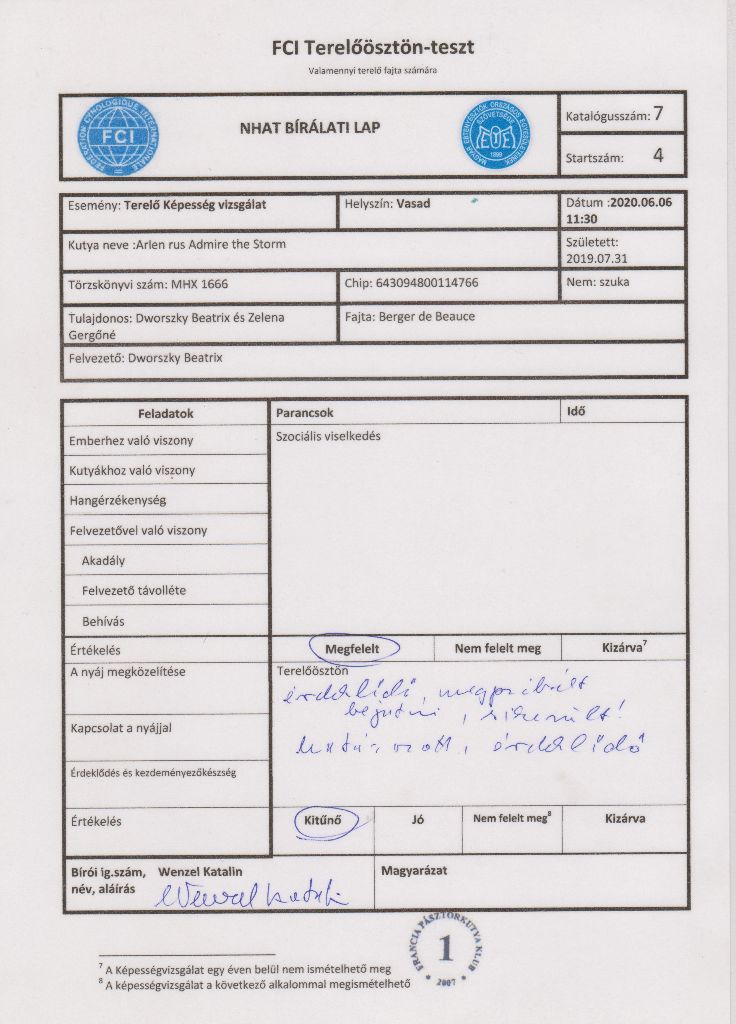 FCI Terelőösztön-teszt
Valamennyi terelő fajta számára
FEDERATION CYNOLOGIQUE INTERNATIONALE
FCI
NHAT BÍRÁLATI LAP
MAGYAR EBTENYÉSZTŐK ORSZÁGOS EGYESÜLETEINEK SZÖVETSÉGE
MEOE
1899
Katalógusszám: 7
Startszám: 4
Esemény: Terelő Képesség vizsgálat
Helyszín: Vasad
Dátum :2020.06.06
11:30
Kutya neve :Arlen rus Admire the Storm
Született:
2019.07.31
Törzskönyvi szám: MHX 1666
Chip: 643094800114766
Nem: szuka
Tulajdonos: Dworszky Beatrix és Zelena
Gergőné
Fajta: Berger de Beauce
Felvezető: Dworszky Beatrix
Feladatok
Parancsok
Idő
Emberhez való viszony
Szociális viselkedés
Kutyákhoz való viszony
Hangérzékenység
Felvezetővel való viszony
Akadály
Felvezető távolléte
Behívás
Értékelés
Megfelelt
Nem felelt meg
Kizárva7
A nyáj megközelítése
Terelőösztön
érdeklődő, megpróbált
bejutni, sikerült!
Kapcsolat a nyájjal
határozott, érdeklődő
Érdeklődés és kezdeményezőkészség
Értékelés
Kitűnő
Jó
Nem felelt meg8
Kizárva
Bírói ig.szám, Wenzel Katalin
név, aláírás
Wenzel Katalin
Magyarázat
FRANCIA PÁSZTORKUTYA KLUB
1
2007
7 A Képességvizsgálat egy éven belül nem ismételhető meg
8 A képességvizsgálat a következő alkalommal megismételhető